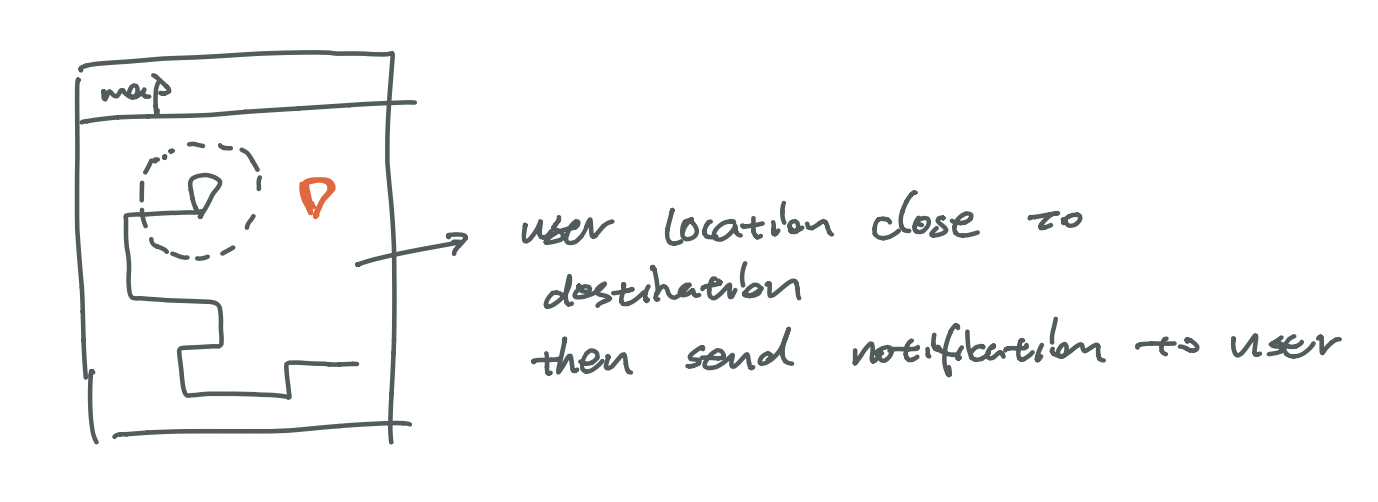 map
user location close to
destination
then send notification to user